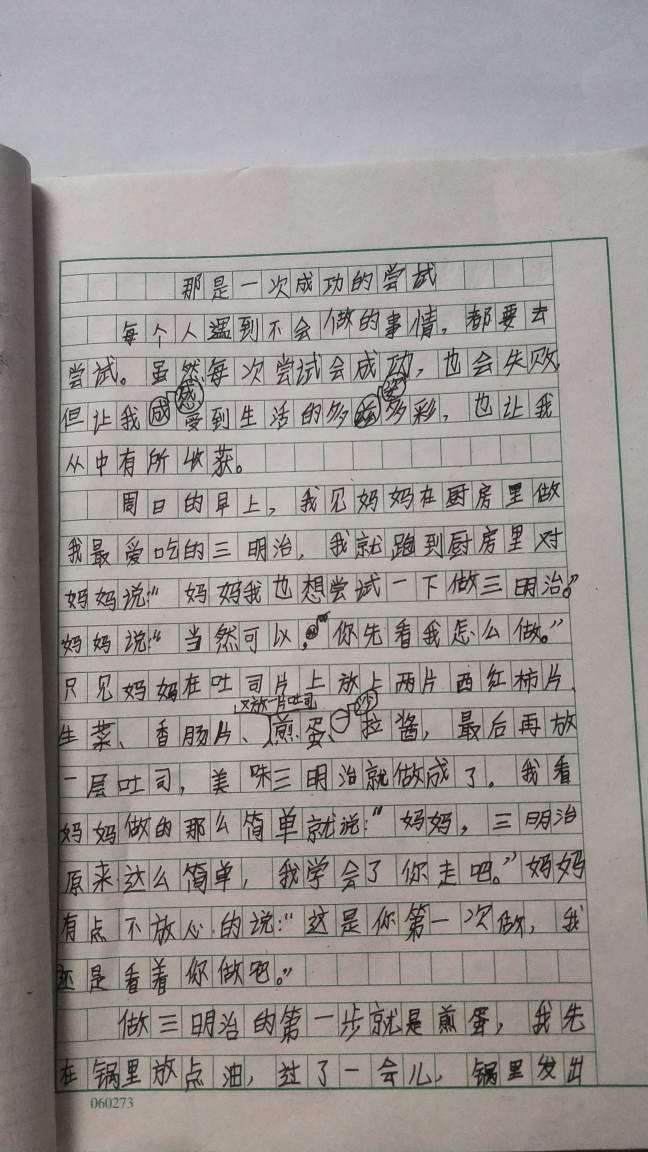 那是一次成功的尝试
每个人遇到不会做的事情，都要去
尝试。虽然每次尝试会成功，也会失败
但让我感受到生活的多姿多彩，也让我
从中有所收获。
周日的早上，我见妈妈在厨房里做
我最爱吃的三明治，我就跑到厨房里对
妈妈说：“妈妈我也想尝试一下做三明治。”
妈妈说：“当然可以，你先看我怎么做。”
只见妈妈在吐司片上放上两片西红柿片、
又放一片吐司
生菜、香肠片、煎蛋、沙拉酱，最后再放
一层吐司，美味三明治就做成了。我看
妈妈做的那么简单就说：“妈妈，三明治
原来这么简单，我学会了你走吧。”妈妈
有点不放心的说：“这是你第一次做，我
还是看着你做吧。”
做三明治的第一步就是煎蛋，我先
在锅里放点油，过了一会儿，锅里发出
060273